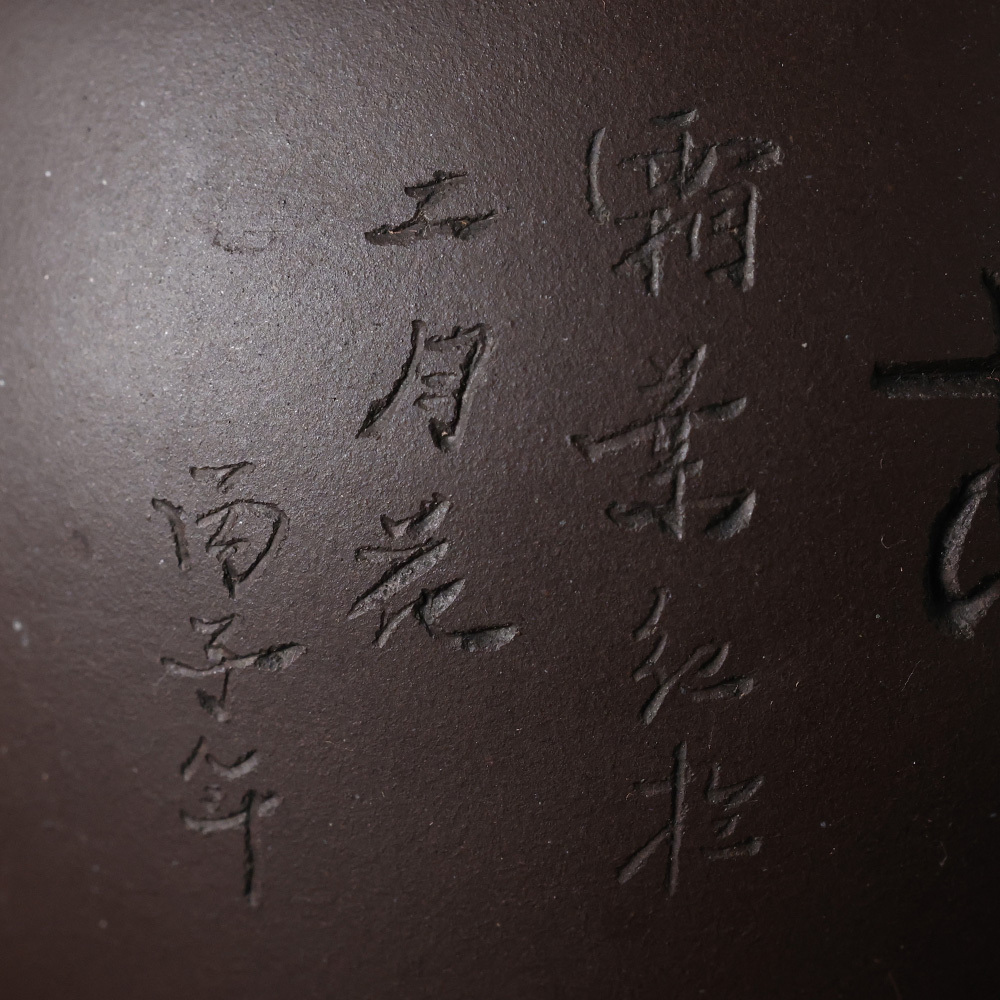 霜葉紅於
二月花
丙子年